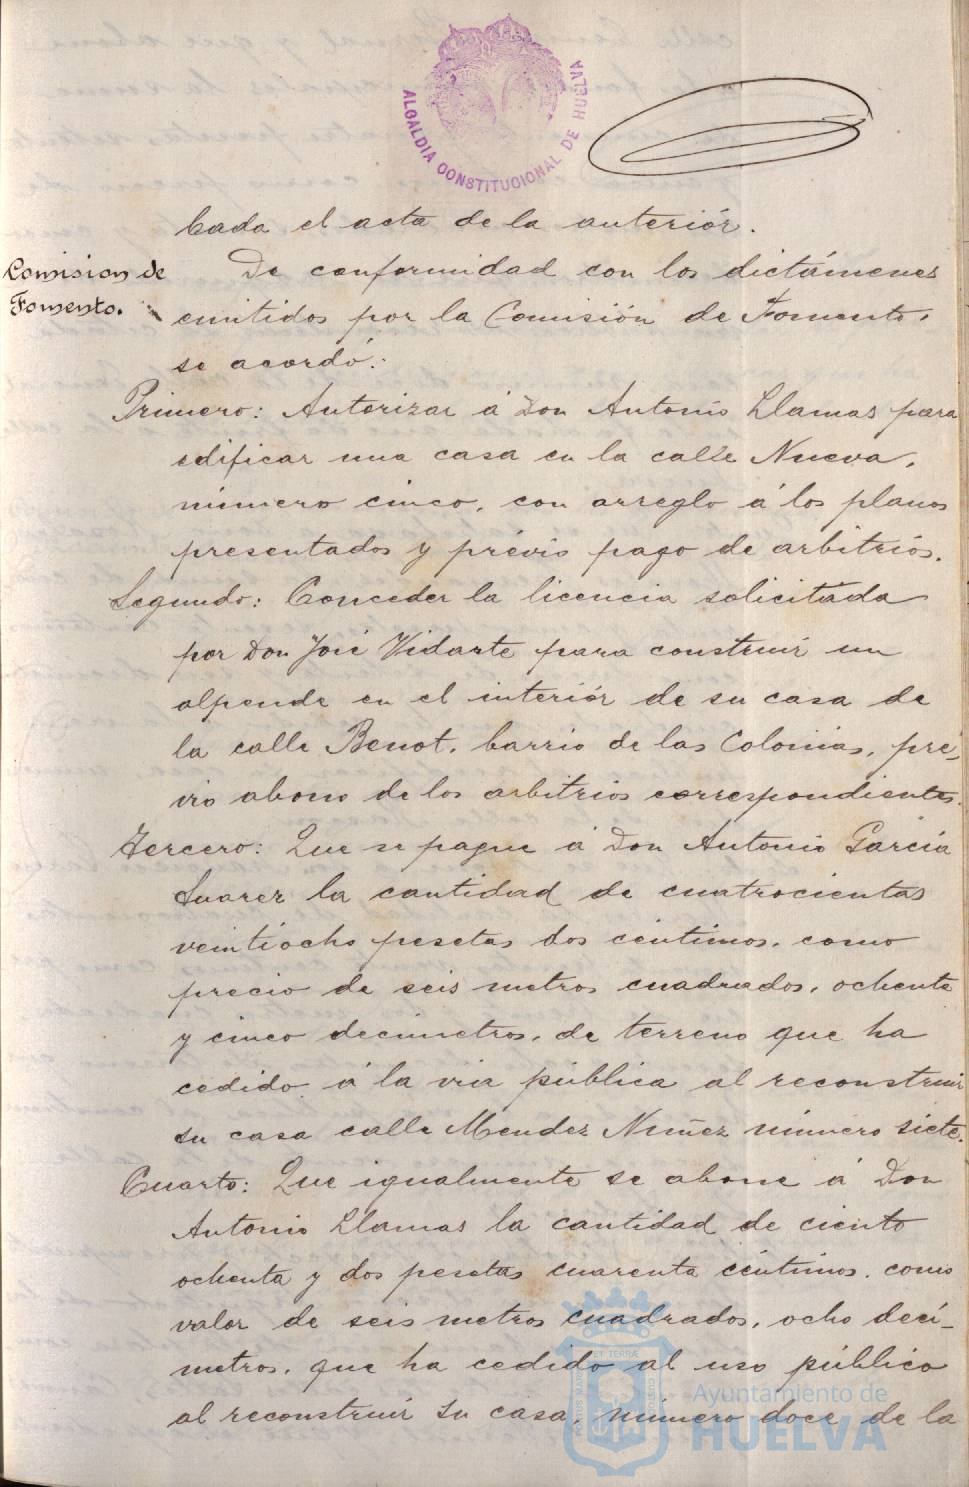 ALCALDIA CONSTITUCIONAL DE HUELVA
bada el acta de la anteriór.
Comision de
Fomento.
De conformidad con los dictámenes
emitidos por la Comisión de Fomento,
se acordó:
Primero: Autorizar á Don Antonio Llamas para
edificar una casa en la calle Nueva,
número cinco, con arreglo á los planos
presentados y prévio pago de arbitrios.
Segundo: Conceder la licencia solicitada
por Don José Vidarte para construir un
alpende en el interiór de su casa de
la calle Benot, barrio de las Colonias, pré-
vio abono de los arbitrios correspondientes.
Tercero: Que se pague á Don Antonio García
Suarez la cantidad de cuatrocientas
veintiocho pesetas dos céntimos, como
precio de seis metros cuadrados, ochenta
y cinco decímetros, de terreno que ha
cedido á la via pública al reconstruir
su casa calle Mendez Nuñez número siete.
Cuarto: Que igualmente se abone á Don
Antonio Llamas la cantidad de ciento
ochenta y dos pesetas cuarenta céntimos, como
valor de seis metros cuadrados, ocho decí-
metros, que ha cedido al uso público
al reconstruir su casa, número doce de la
Ayuntamiento de
HUELVA